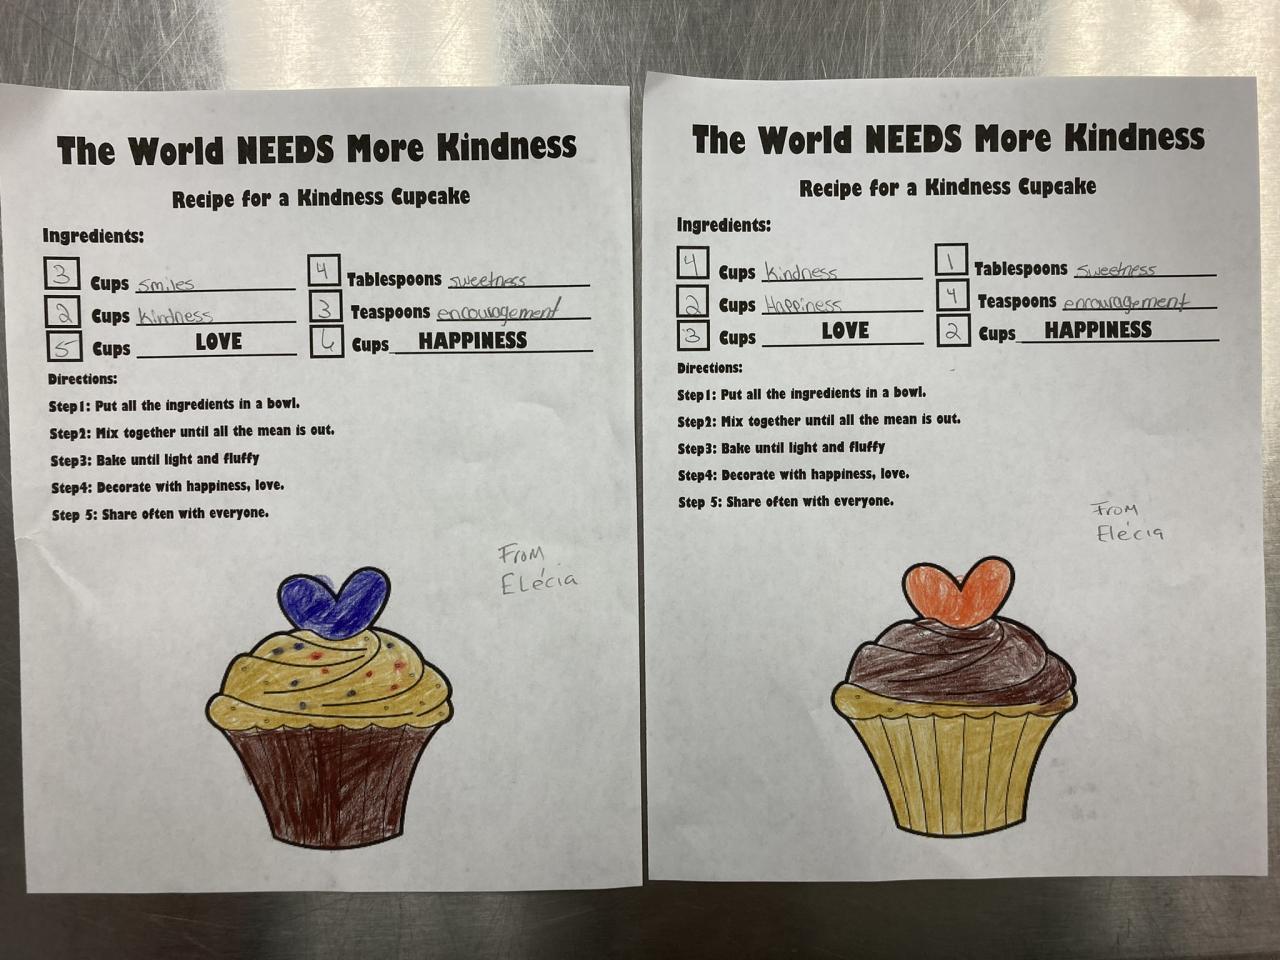 The World NEEDS More Kindness
Recipe for a Kindness Cupcake
Ingredients:
3 Cups smiles 4 Tablespoons sweetness
2 Cups kindness 3 Teaspoons encouragement
5 Cups LOVE 6 Cups HAPPINESS
Directions:
Step1: Put all the ingredients in a bowl.
Step2: Mix together until all the mean is out.
Step3: Bake until light and fluffy
Step4: Decorate with happiness, love.
Step 5: Share often with everyone.
From
Elécia
The World NEEDS More Kindness
Recipe for a Kindness Cupcake
Ingredients:
4 Cups kindness 1 Tablespoons sweetness
2 Cups Happiness 4 Teaspoons encouragement
3 Cups LOVE 2 Cups HAPPINESS
Directions:
Step1: Put all the ingredients in a bowl.
Step2: Mix together until all the mean is out.
Step3: Bake until light and fluffy
Step4: Decorate with happiness, love.
Step 5: Share often with everyone.
From
Elécia